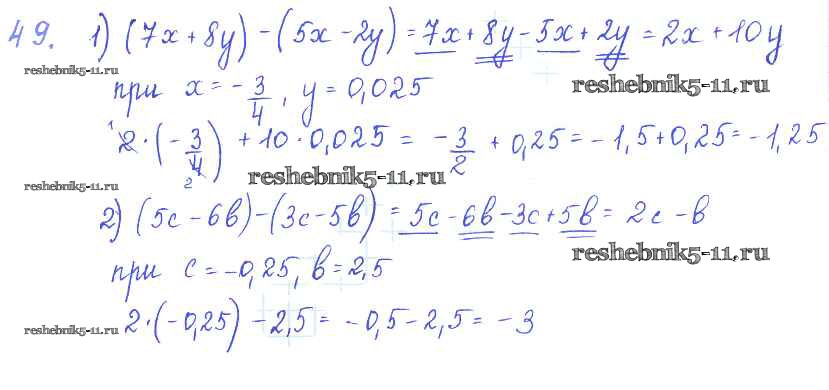 49. 1) (7x + 8y) - (5x - 2y) = 7x + 8y - 5x + 2y = 2x + 10y
reshebnik5-11.ru
reshebnik5-11.ru
при x = -3/4, y = 0,025
2·(-3/4) + 10·0,025 = -3/2 + 0,25 = -1,5 + 0,25 = -1,25
1
2
reshebnik5-11.ru
reshebnik5-11.ru
2) (5c - 6в) - (3c - 5в) = 5c - 6в - 3c + 5в = 2c - в
reshebnik5-11.ru
при c = -0,25, в = 2,5
2·(-0,25) - 2,5 = -0,5 - 2,5 = -3
reshebnik5-11.ru